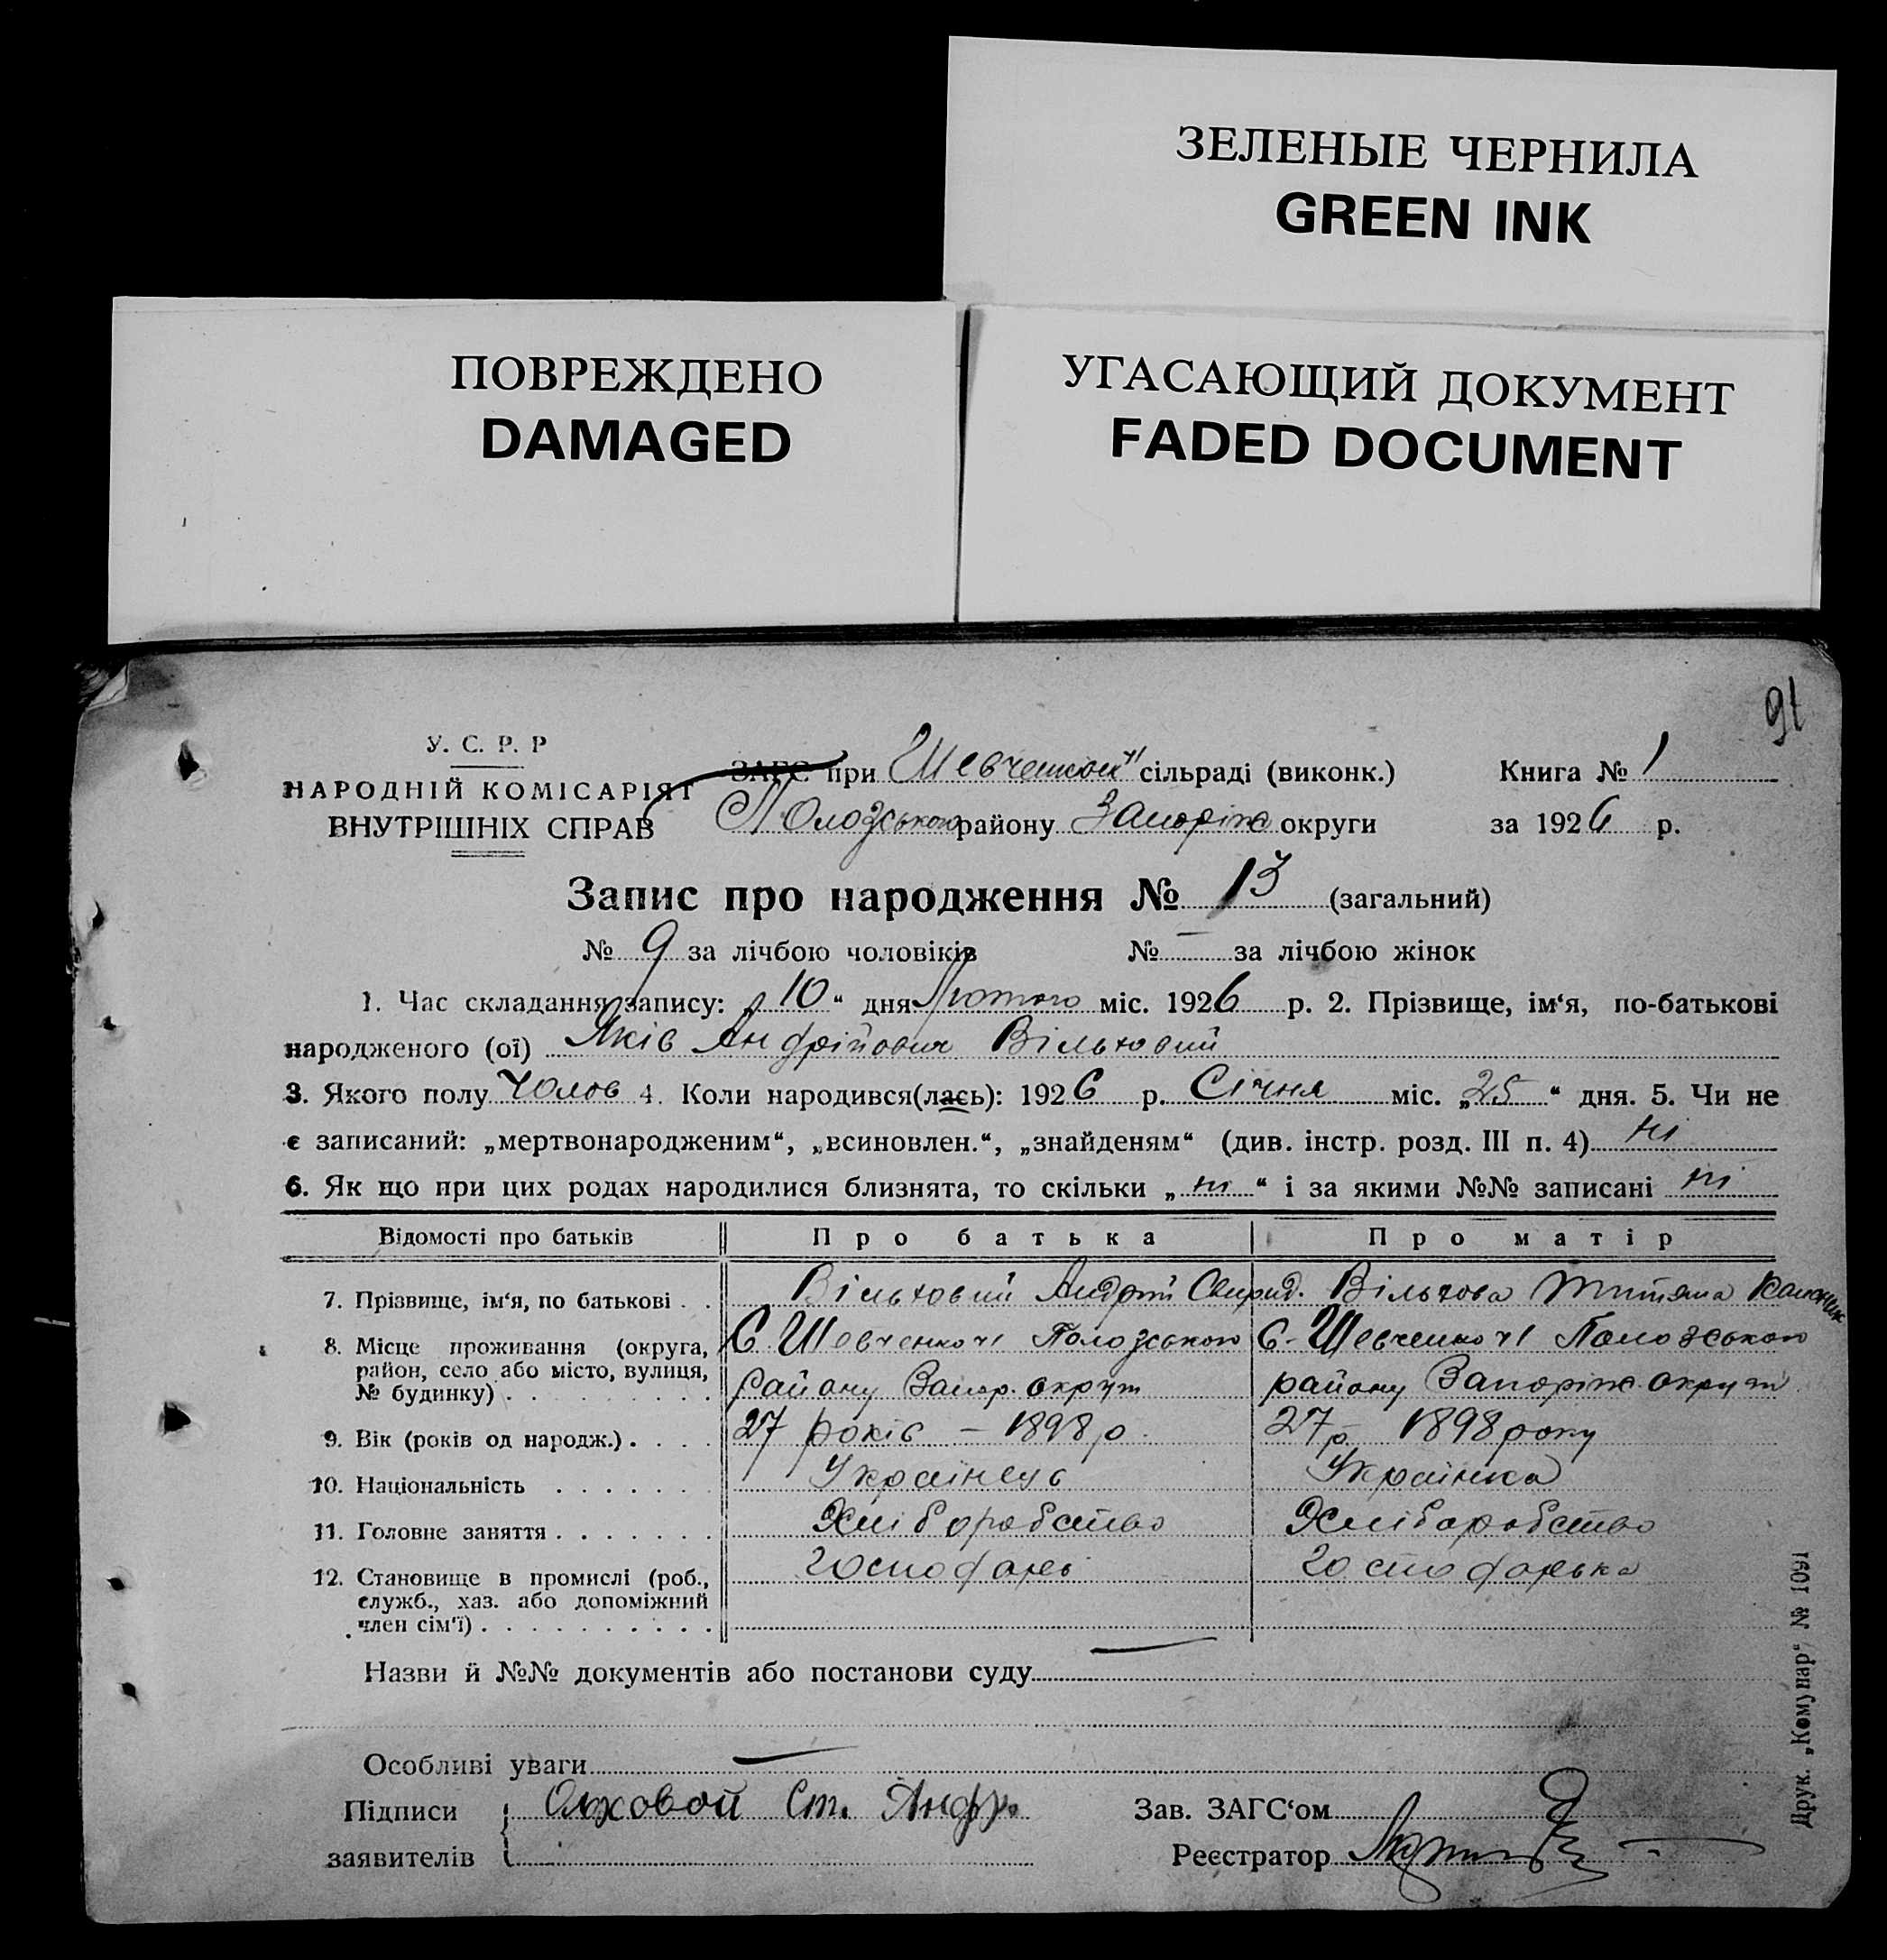 ЗЕЛЕНЫЕ ЧЕРНИЛА
GREEN INK
ПОВРЕЖДЕНО
DAMAGED
УГАСАЮЩИЙ ДОКУМЕНТ
FADED DOCUMENT
91
У. С. Р. Р
НАРОДНІЙ КОМІСАРІЯТ
ВНУТРІШНІХ СПРАВ
ЗАГС при сільраді (виконк.) Книга № 1
Полозського району Запоріж округи за 1926 р.
Запис про народження № 13 (загальний)
№ 9 за лічбою чоловіків № — за лічбою жінок
1. Час складання запису: „10“ дня Лютого міс. 1926 р. 2. Прізвище, ім‘я, по-батькові
народженого (ої) Яків Андрійович Вільховий
3. Якого полу Чолов 4. Коли народився(лась): 1926 р. Січня міс. „25“ дня. 5. Чи не
є записаний: „мертвонародженим“, „всиновлен.“, „знайденям“ (див. інстр. розд. III п. 4) ні
6. Як що при цих родах народилися близнята, то скільки „ні“ і за якими №№ записані ні
Відомості про батьків Про батька Про матір
7. Прізвище, ім‘я, по батькові . . Вільховий Андрій Свирид. Вільхова Титяна
8. Місце проживання (округа, район, село або місто, вулиця, № будинку) . С. Шевченкові Полозського району Запор. округи С. Шевченкові Полозського району Запоріж. округи
9. Вік (років од народж.) . . . . 27 років — 1898 р. 27 р. 1898 року
10. Національність . . . . . . . Українець Українка
11. Головне заняття . . . . . . . Хліборобство Хліборобство
12. Становище в промислі (роб., служб., хаз. або допоміжний член сім‘ї) . . . . . . . . . . Господарь Господарька
Назви й №№ документів або постанови суду —
Особливі уваги —
Підписи Ольховой Ст. Андр. Зав. ЗАГС‘ом
заявителів Реєстратор
Друк. „Комунар“ № 1091